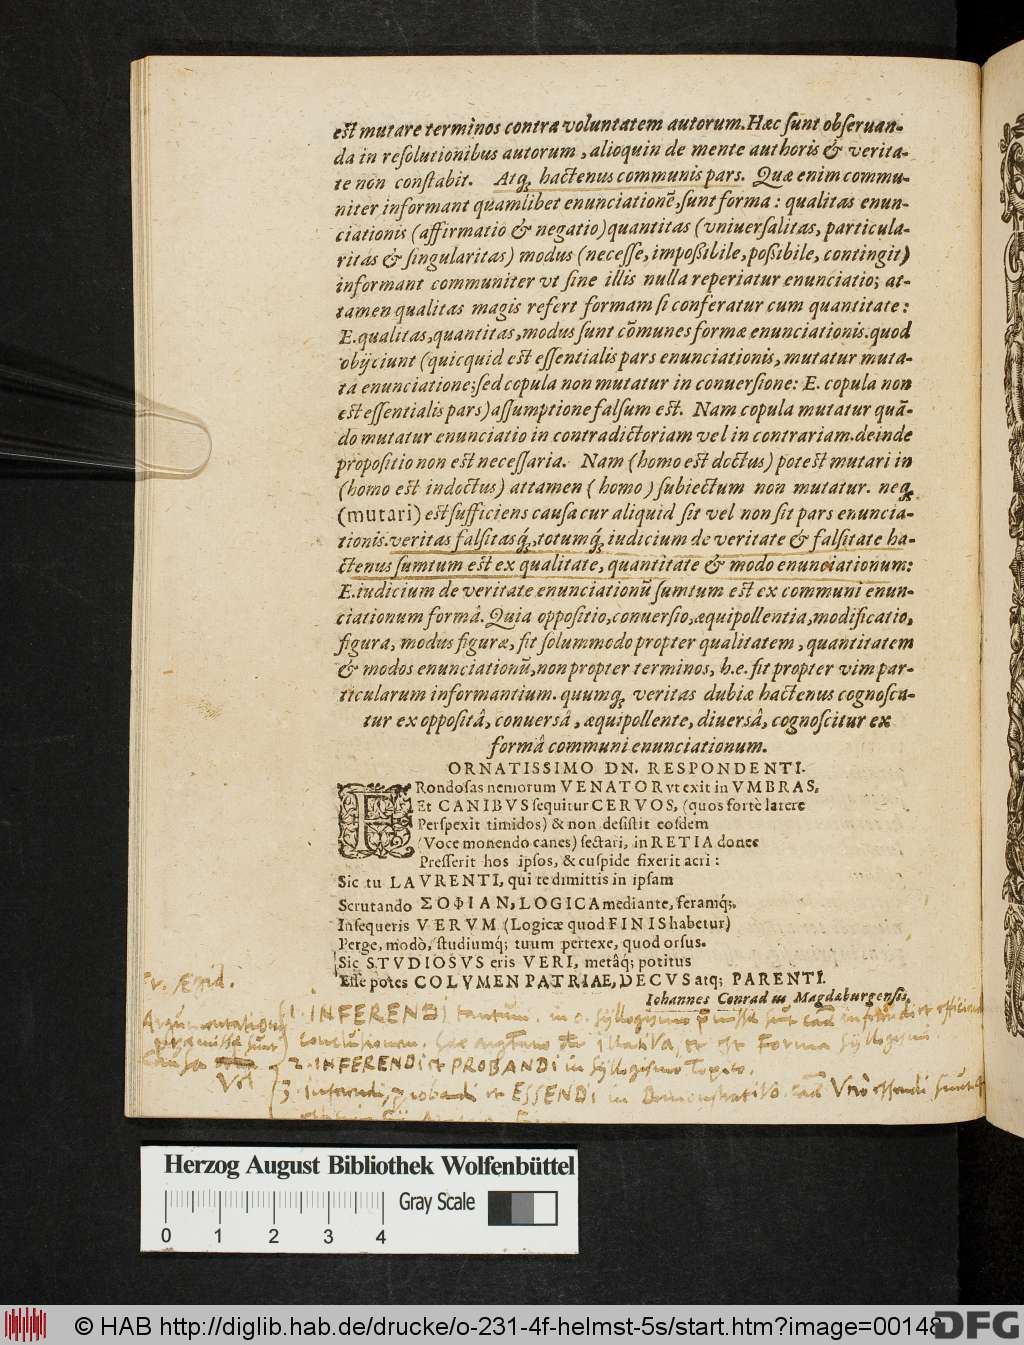 est mutare terminos contra voluntatem autorum. Hæc sunt obseruan-
da in resolutionibus autorum, alioquin de mente authoris & verita-
te non constabit. Atq; hactenus communis pars. Quæ enim commu-
niter informant quamlibet enunciationē, sunt forma: qualitas enun-
ciationis (affirmatio & negatio) quantitas (vniuersalitas, particula-
ritas & singularitas) modus (necesse, impoßibile, poßibile, contingit)
informant communiter vt sine illis nulla reperiatur enunciatio; at-
tamen qualitas magis refert formam si conferatur cum quantitate:
E. qualitas, quantitas, modus sunt cōmunes formæ enunciationis. quod
obijciunt (quicquid est essentialis pars enunciationis, mutatur muta-
tâ enunciatione; sed copula non mutatur in conuersione: E. copula non
est essentialis pars) assumptione falsum est. Nam copula mutatur quā-
do mutatur enunciatio in contradictoriam vel in contrariam. deinde
propositio non est necessaria. Nam (homo est doctus) potest mutari in
(homo est indoctus) attamen (homo) subiectum non mutatur. neq;
(mutari) est sufficiens causa cur aliquid sit vel non sit pars enuncia-
tionis. veritas falsitasq́;, totumq́; iudicium de veritate & falsitate ha-
ctenus sumtum est ex qualitate, quantitate & modo enunciationum:
E. iudicium de veritate enunciationū sumtum est ex communi enun-
ciationum formâ. Quia oppositio, conuersio, æquipollentia, modificatio,
figura, modus figuræ, fit solummodo propter qualitatem, quantitatem
& modos enunciationū, non propter terminos, h.e. fit propter vim par-
ticularum informantium. quumq; veritas dubiæ hactenus cognosca-
tur ex oppositâ, conuersâ, æquipollente, diuersâ, cognoscitur ex
formâ communi enunciationum.
ORNATISSIMO DN. RESPONDENTI.
FRondosas nemorum VENATOR vt exit in VMBRAS,
Et CANIBVS sequitur CERVOS, (quos fortè latere
Perspexit timidos) & non desistit eosdem
(Voce monendo canes) sectari, in RETIA donec
Presserit hos ipsos, & cuspide fixerit acri:
Sic tu LAVRENTI, qui te dimittis in ipsam
Scrutando ΣΟΦΙΑΝ, LOGICA mediante, feramq́;,
Insequeris VERVM (Logicæ quod FINIS habetur)
Perge, modò, studiumq́; tuum pertexe, quod orsus.
Sic STVDIOSVS eris VERI, metâq; potitus
Esse potes COLVMEN PATRIAE, DECVS atq; PARENTI.
Iohannes Conradus Magdæburgensis.
Argumentationis
præmissæ sunt
Causa
Vel
1. INFERENDI tantum. in o. syllogismo
conclusionem. illativa, et est Forma syllogismi.
2. INFERENDI et PROBANDI in syllogismo Topico.
3. inferendi, probandi et ESSENDI in Demonstrativo.
Herzog August Bibliothek Wolfenbüttel
Gray Scale
0 1 2 3 4
© HAB http://diglib.hab.de/drucke/o-231-4f-helmst-5s/start.htm?image=00148
DFG